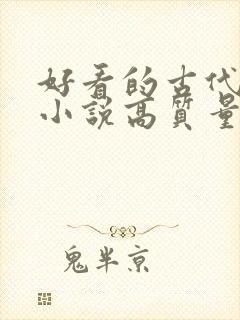 好看的古代
小说高质量
鬼半京